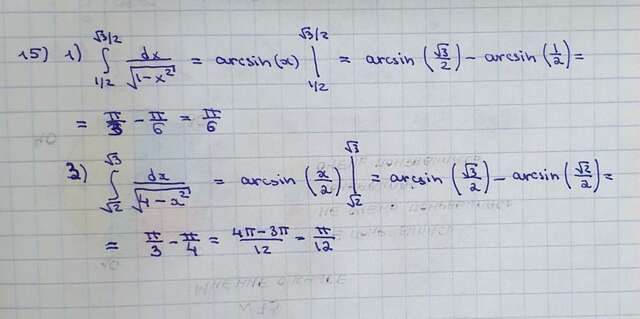 15) 1) ∫_{1/2}^{√3/2} dx/√(1-x²) = arcsin(x) |_{1/2}^{√3/2} = arcsin(√3/2) - arcsin(1/2) =
= π/3 - π/6 = π/6
3) ∫_{√2}^{√3} dx/√(4-x²) = arcsin(x/2) |_{√2}^{√3} = arcsin(√3/2) - arcsin(√2/2) =
= π/3 - π/4 = (4π-3π)/12 = π/12